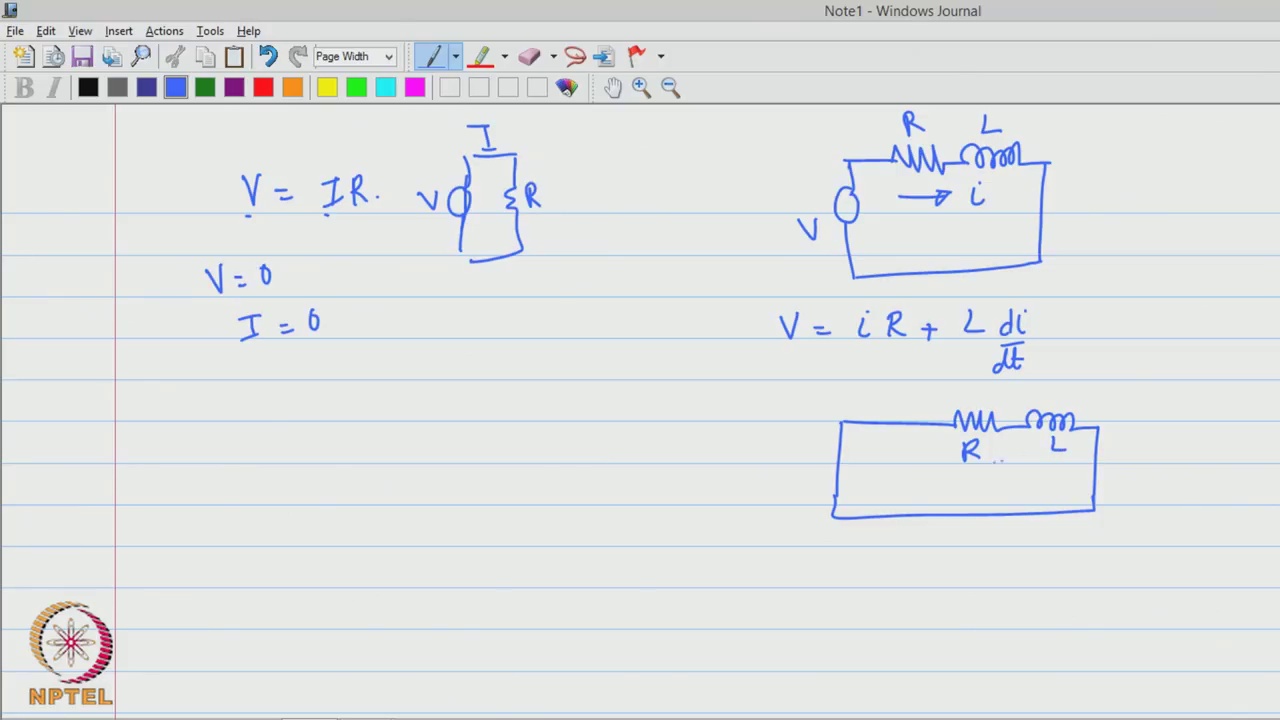 Note1 - Windows Journal
File Edit View Insert Actions Tools Help
Page Width
B I
I
V = IR.
V
R
V = 0
I = 0
R L
i
V
V = i R + L di/dt
R L
NPTEL